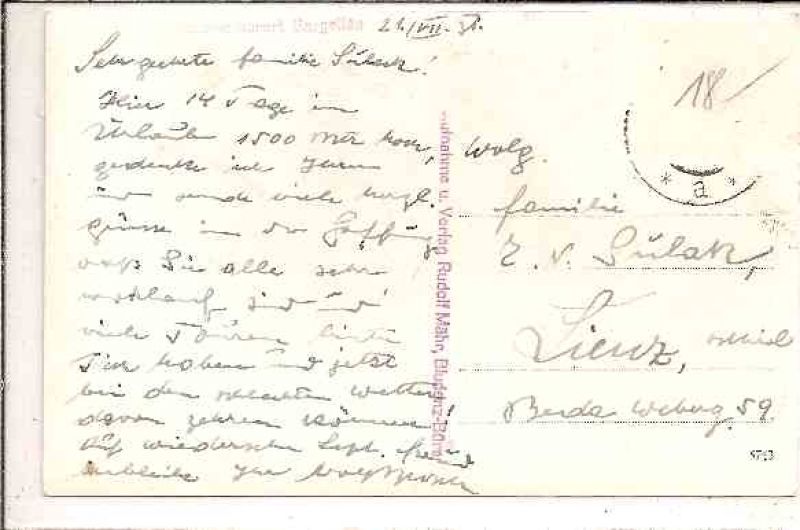 Gargellen 21./VII.
Sehr geehrte Familie Sülak!
Hier 14 Tage im
Urlaub 1500 mtr hoch,
gedenke ich Ihrer
und sende viele herzl.
Grüsse in der Hoffnung
daß Sie alle sehr
wohlauf sind und
viele Touren hinter
sich haben und jetzt
bei dem schlechten Wetter
davon zehren können!
Auf Wiedersehn Sept.
verbleibe Ihr
Aufnahme u. Verlag Rudolf Mähr, Bludenz-Bürs
18
* a *
Wolg.
Familie
Z. v. Sülak,
Lienz,
59